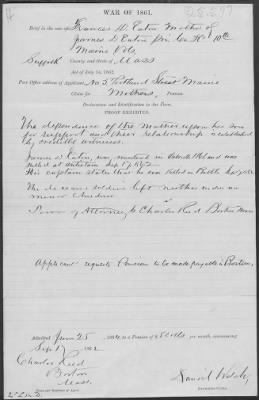 WAR OF 1861.
Brief in the case of Frances D. Eaton Mother of
James D. Eaton Co. 10th
Maine Vols
Suffolk County, and State of Mass
Act of July 14, 1862.
Post Office address of Applicant, No 5 Portland Street Maine
Claim for Mothers, Pension.
Declaration and Identification in due Form.
PROOF EXHIBITED.
The dependence of the mother upon her son
for support and their relationship established
by credible witnesses.
James D. Eaton, was mustered in and was
killed at Antietam Sep 17, 1862
His captain states that he was killed in Battle
The deceased soldier left neither widow or
minor children
Power of Attorney, to Charles Reed Boston Mass
Applicant requests Pension to be made payable in Boston,
Admitted June 25 1864, to a Pension of $8 per month, commencing
Sep 17, 1862
Charles Reed
Boston
Mass.